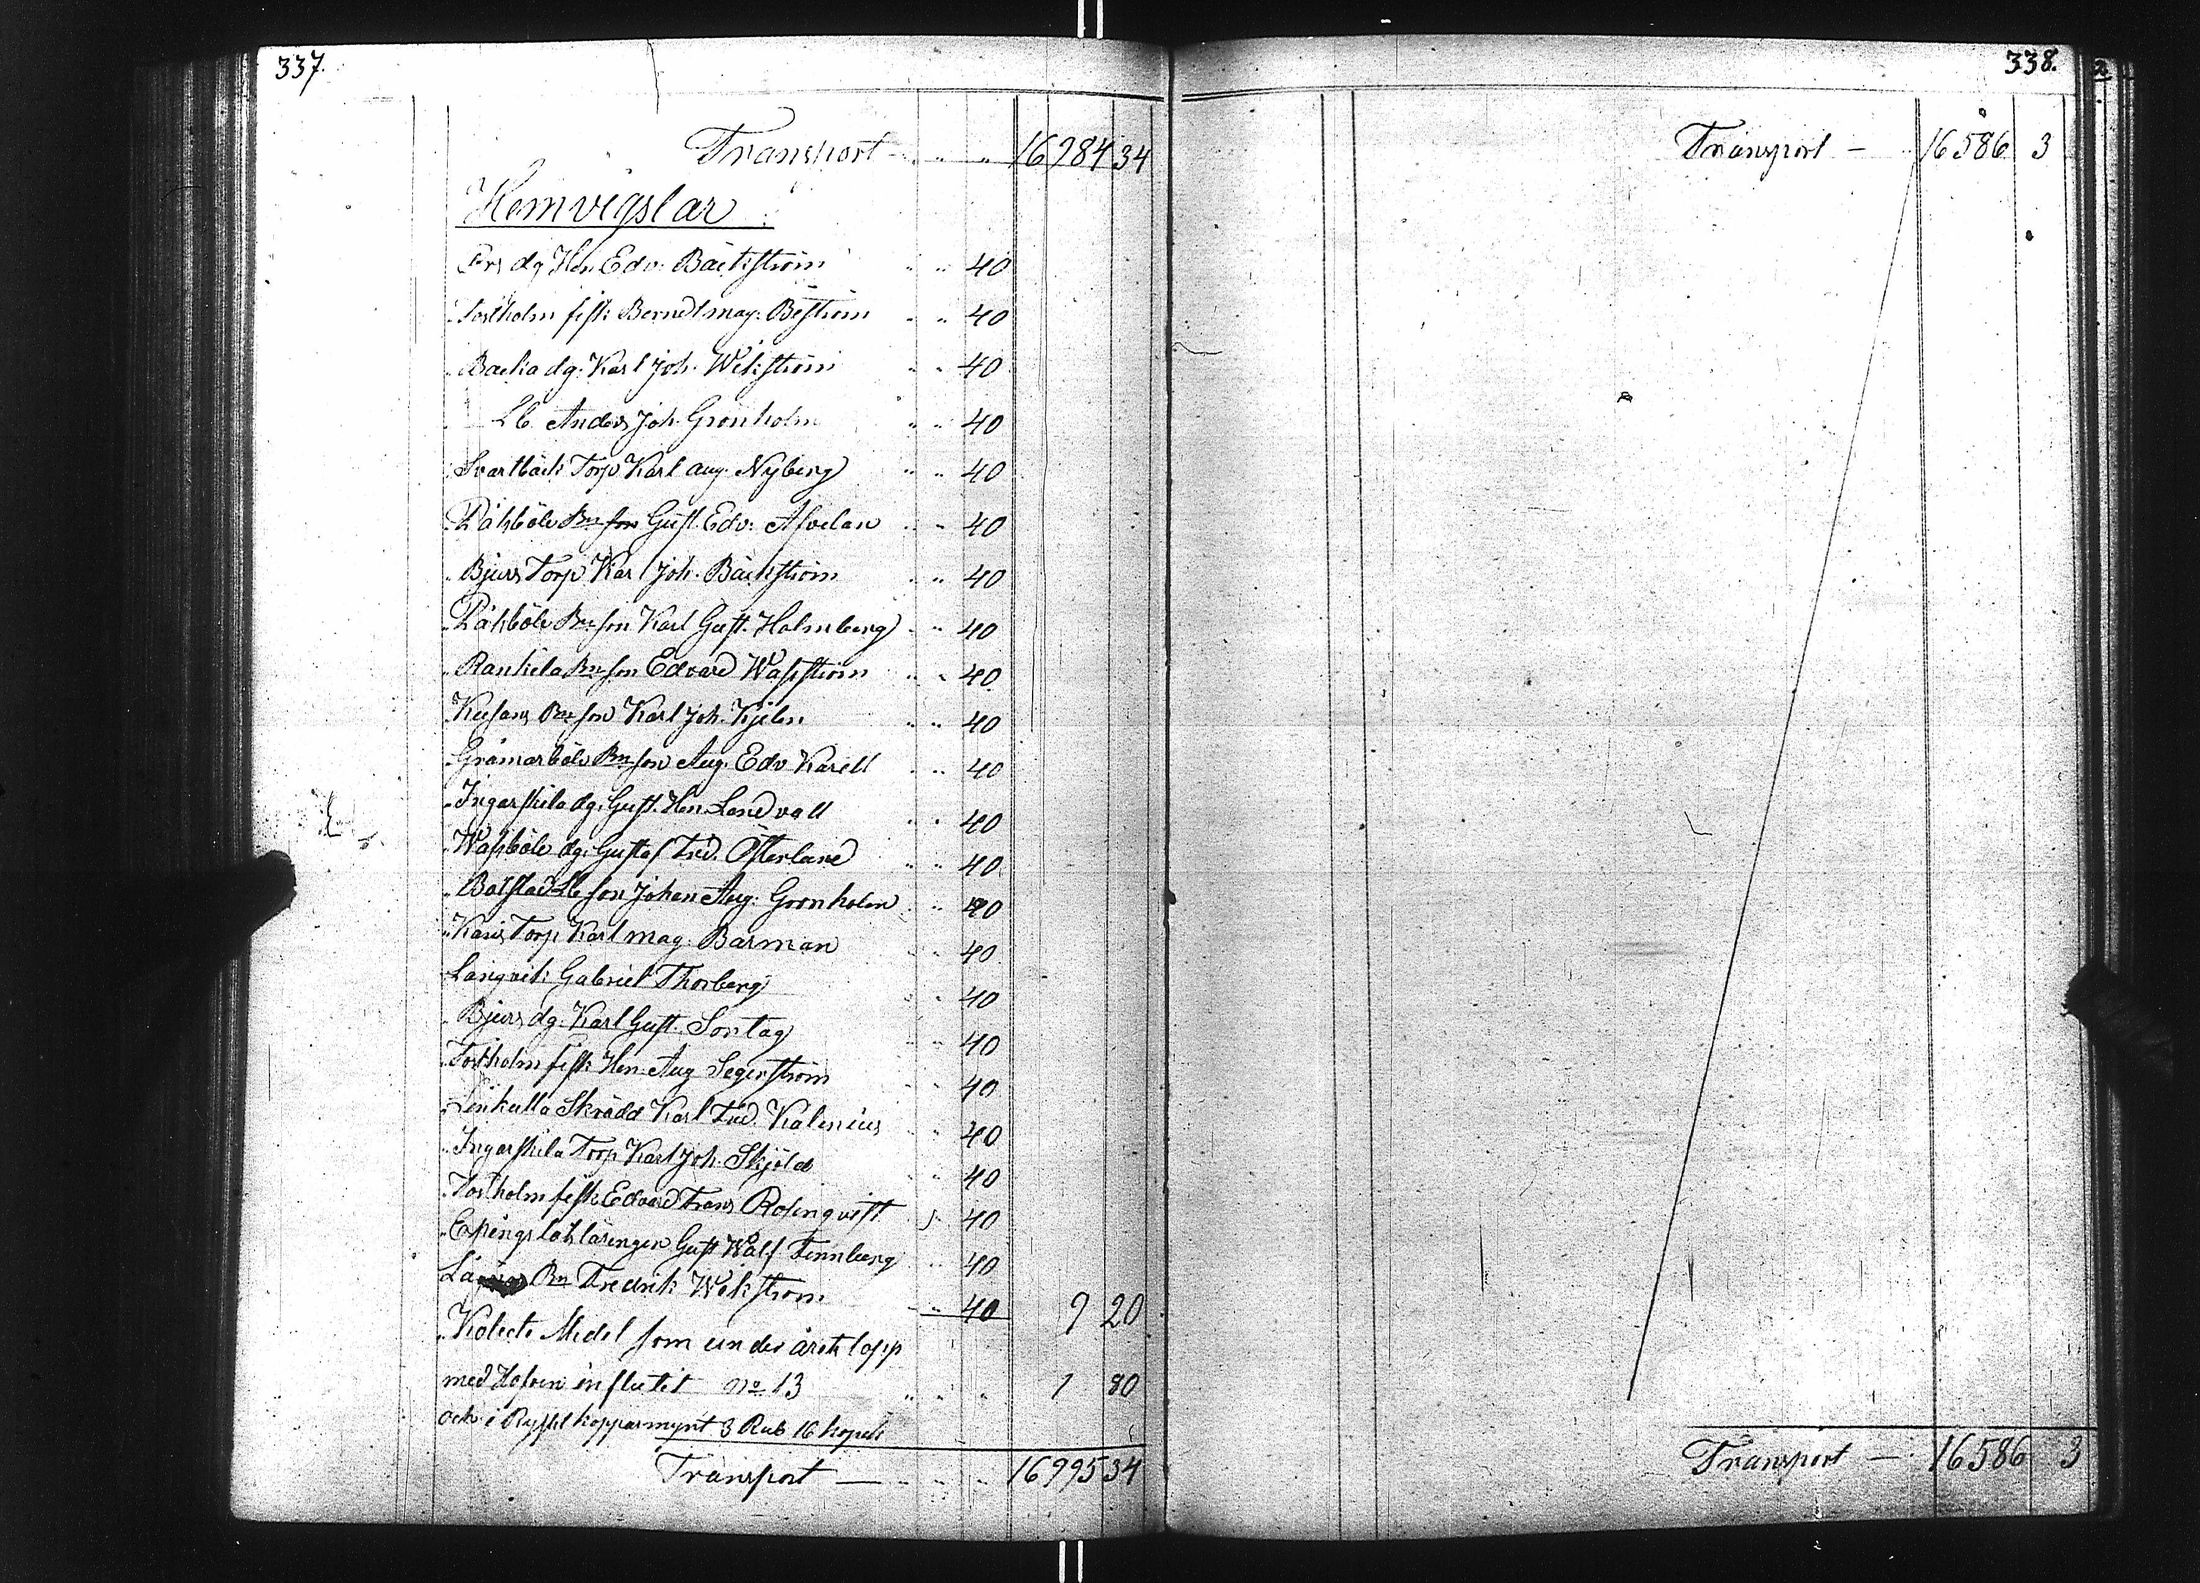 337.
Transport 16984 34
Hemvigslar
dg Hen. Edv. Bäckström " " 40
fisk: Bernd mag: Boström " " 40
" Backa dg: Karl Joh. Wikström " " 40
" Lb. Anders Joh Grönholm " " 40
Svartbäck Torp Karl Aug. Nyberg " " 40
Påhböle Bn son Gust. Edv: Afvelan " " 40
" Bjurs Torp Karl Joh. Bäckström " " 40
" Påhböle Bn son Karl Gust. Holmberg " " 40
" Rankila Bn son Edvard Wasström " " 40
Bn son Karl Joh. Kjilen " " 40
Bn son Aug. Edv Karell " " 40
" Ingarskila dg: Gust. Hen. Landvall " " 40
" Wasböle dg: Gustaf Fred. Österlund " " 40
" Båtstad Lb son Johan Aug: Grönholm " " 40
" Torp Karl mag. Barman " " 40
Långvik Gabriel Thorberg " " 40
" Bjurs dg. Karl Gust. Sontag " " 40
fisk Hen Aug Segerström " " 40
" Linkulla Skrädd Karl Fred. Kalenius " " 40
" Ingarskila Torp Karl Joh. Skjöld " " 40
fisk Edvard Frans Rosenqvist " 40
Gust Walf. Fennberg " 40
Bn Fredrik Wikström " 40 9 20
" Kolect Medel som under årets lopp
med Hafven influtit No 13 " " " 1 80
och i Ryskt kopparmynt 3 Rub 16 kopek
Transport — 16995 34
338.
Transport — 16586 3
Transport — 16586 3